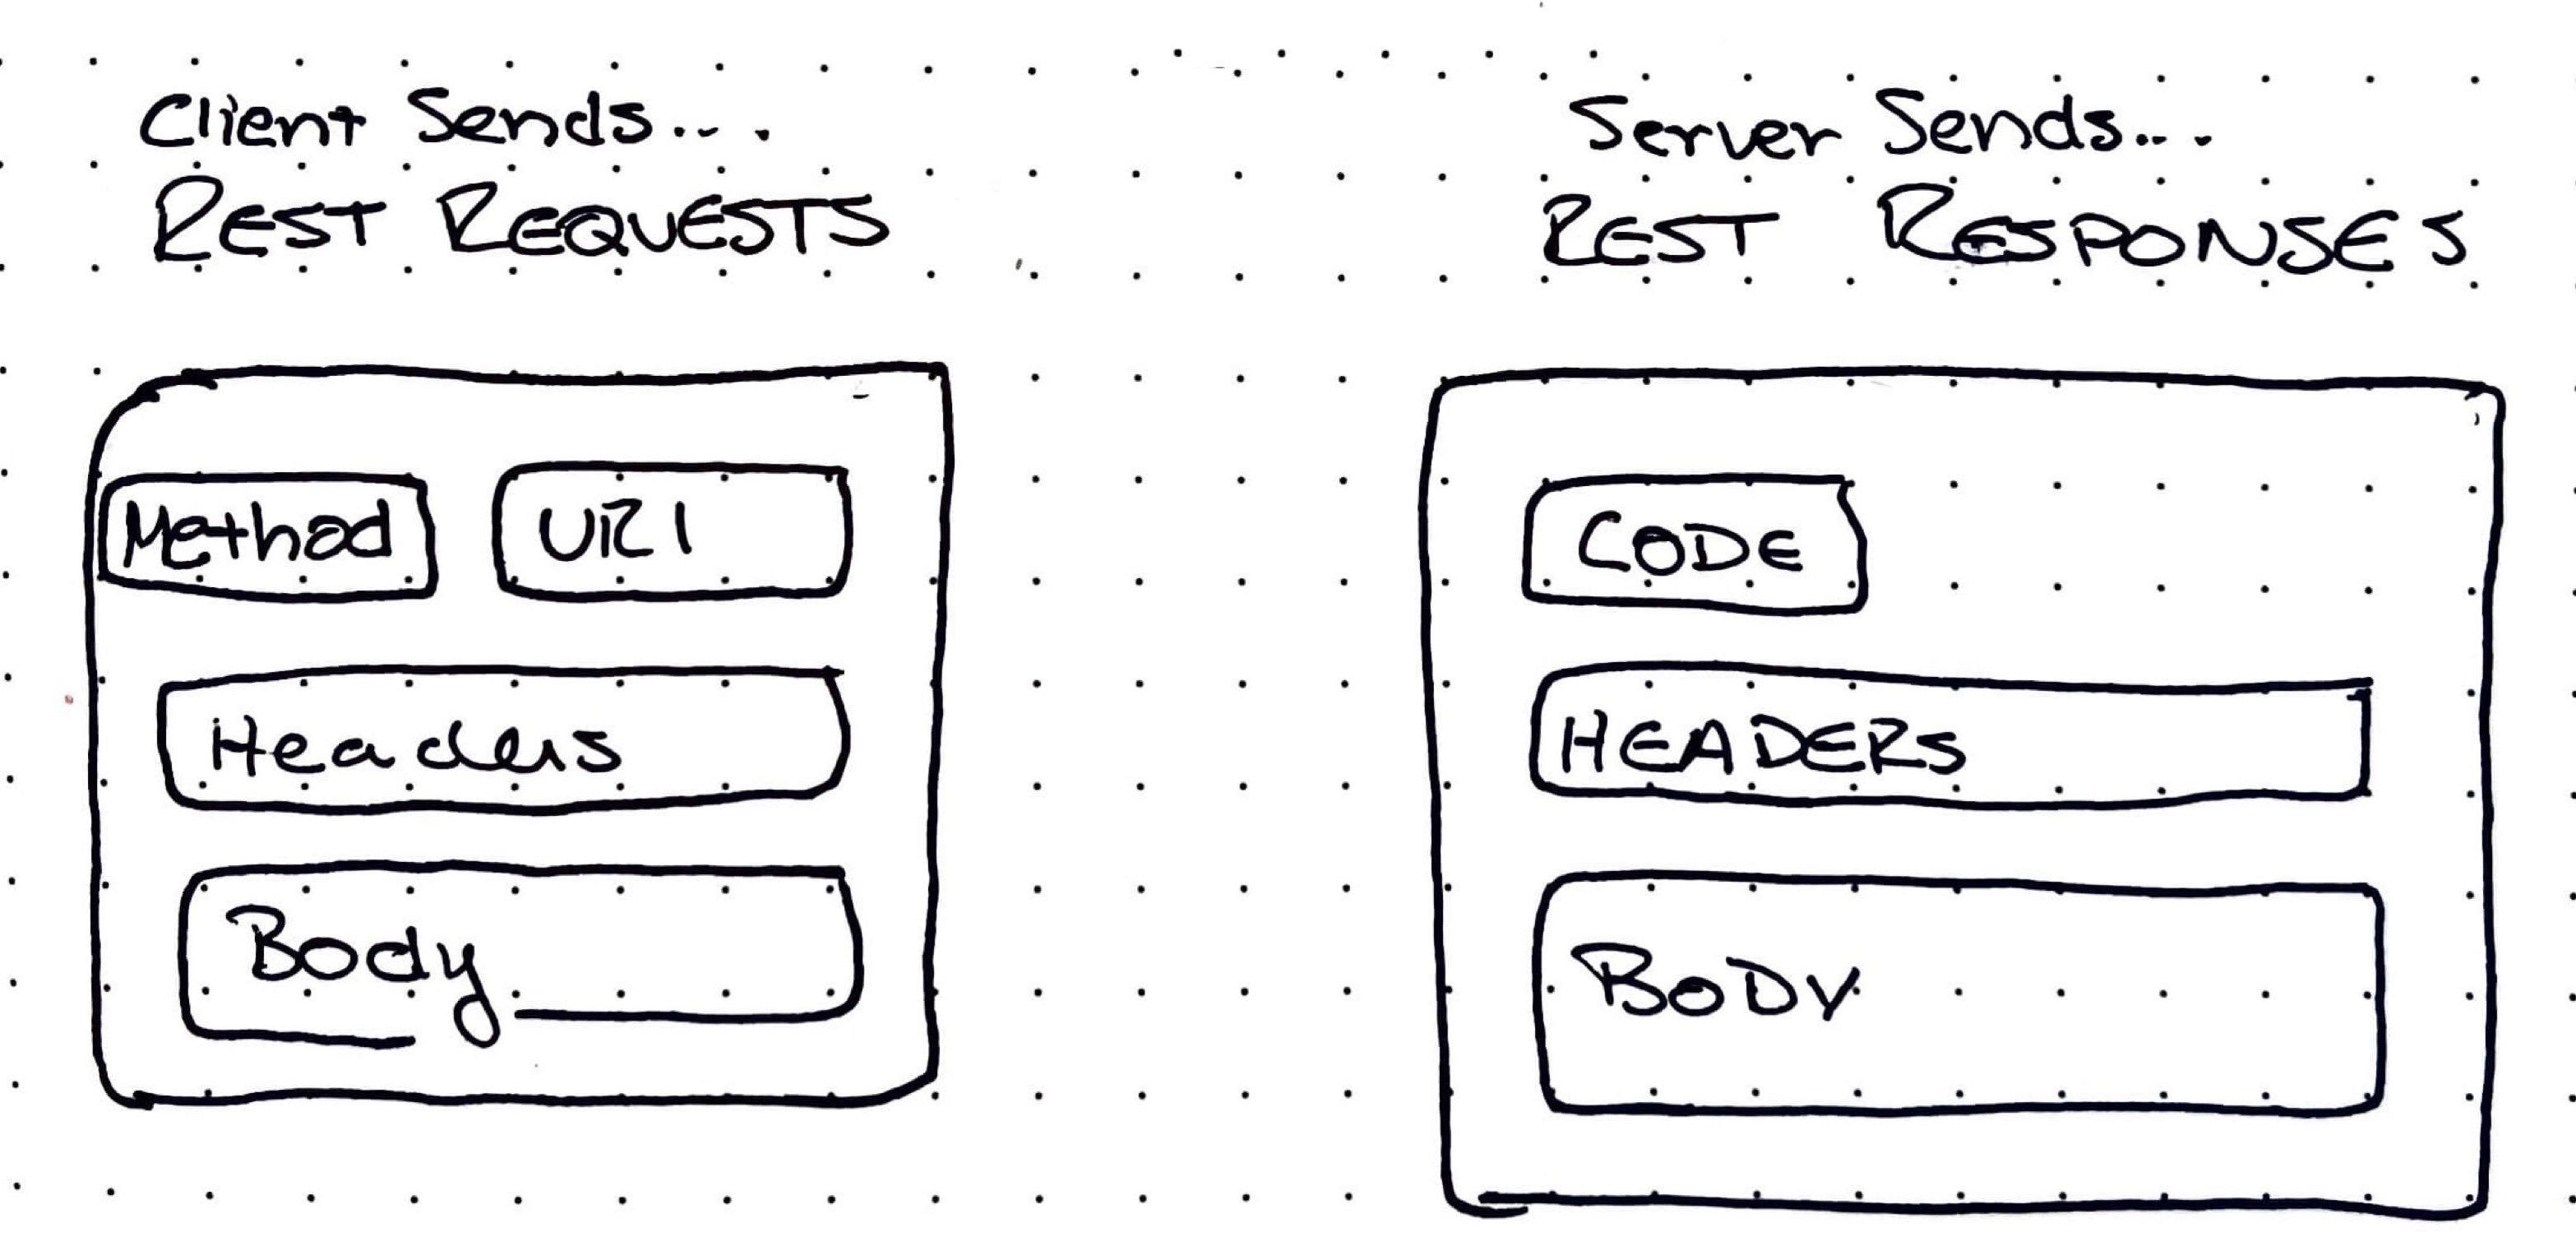 Client Sends...
REST REQUESTS
Method URI
Headers
Body
Server Sends...
REST RESPONSES
CODE
HEADERS
BODY